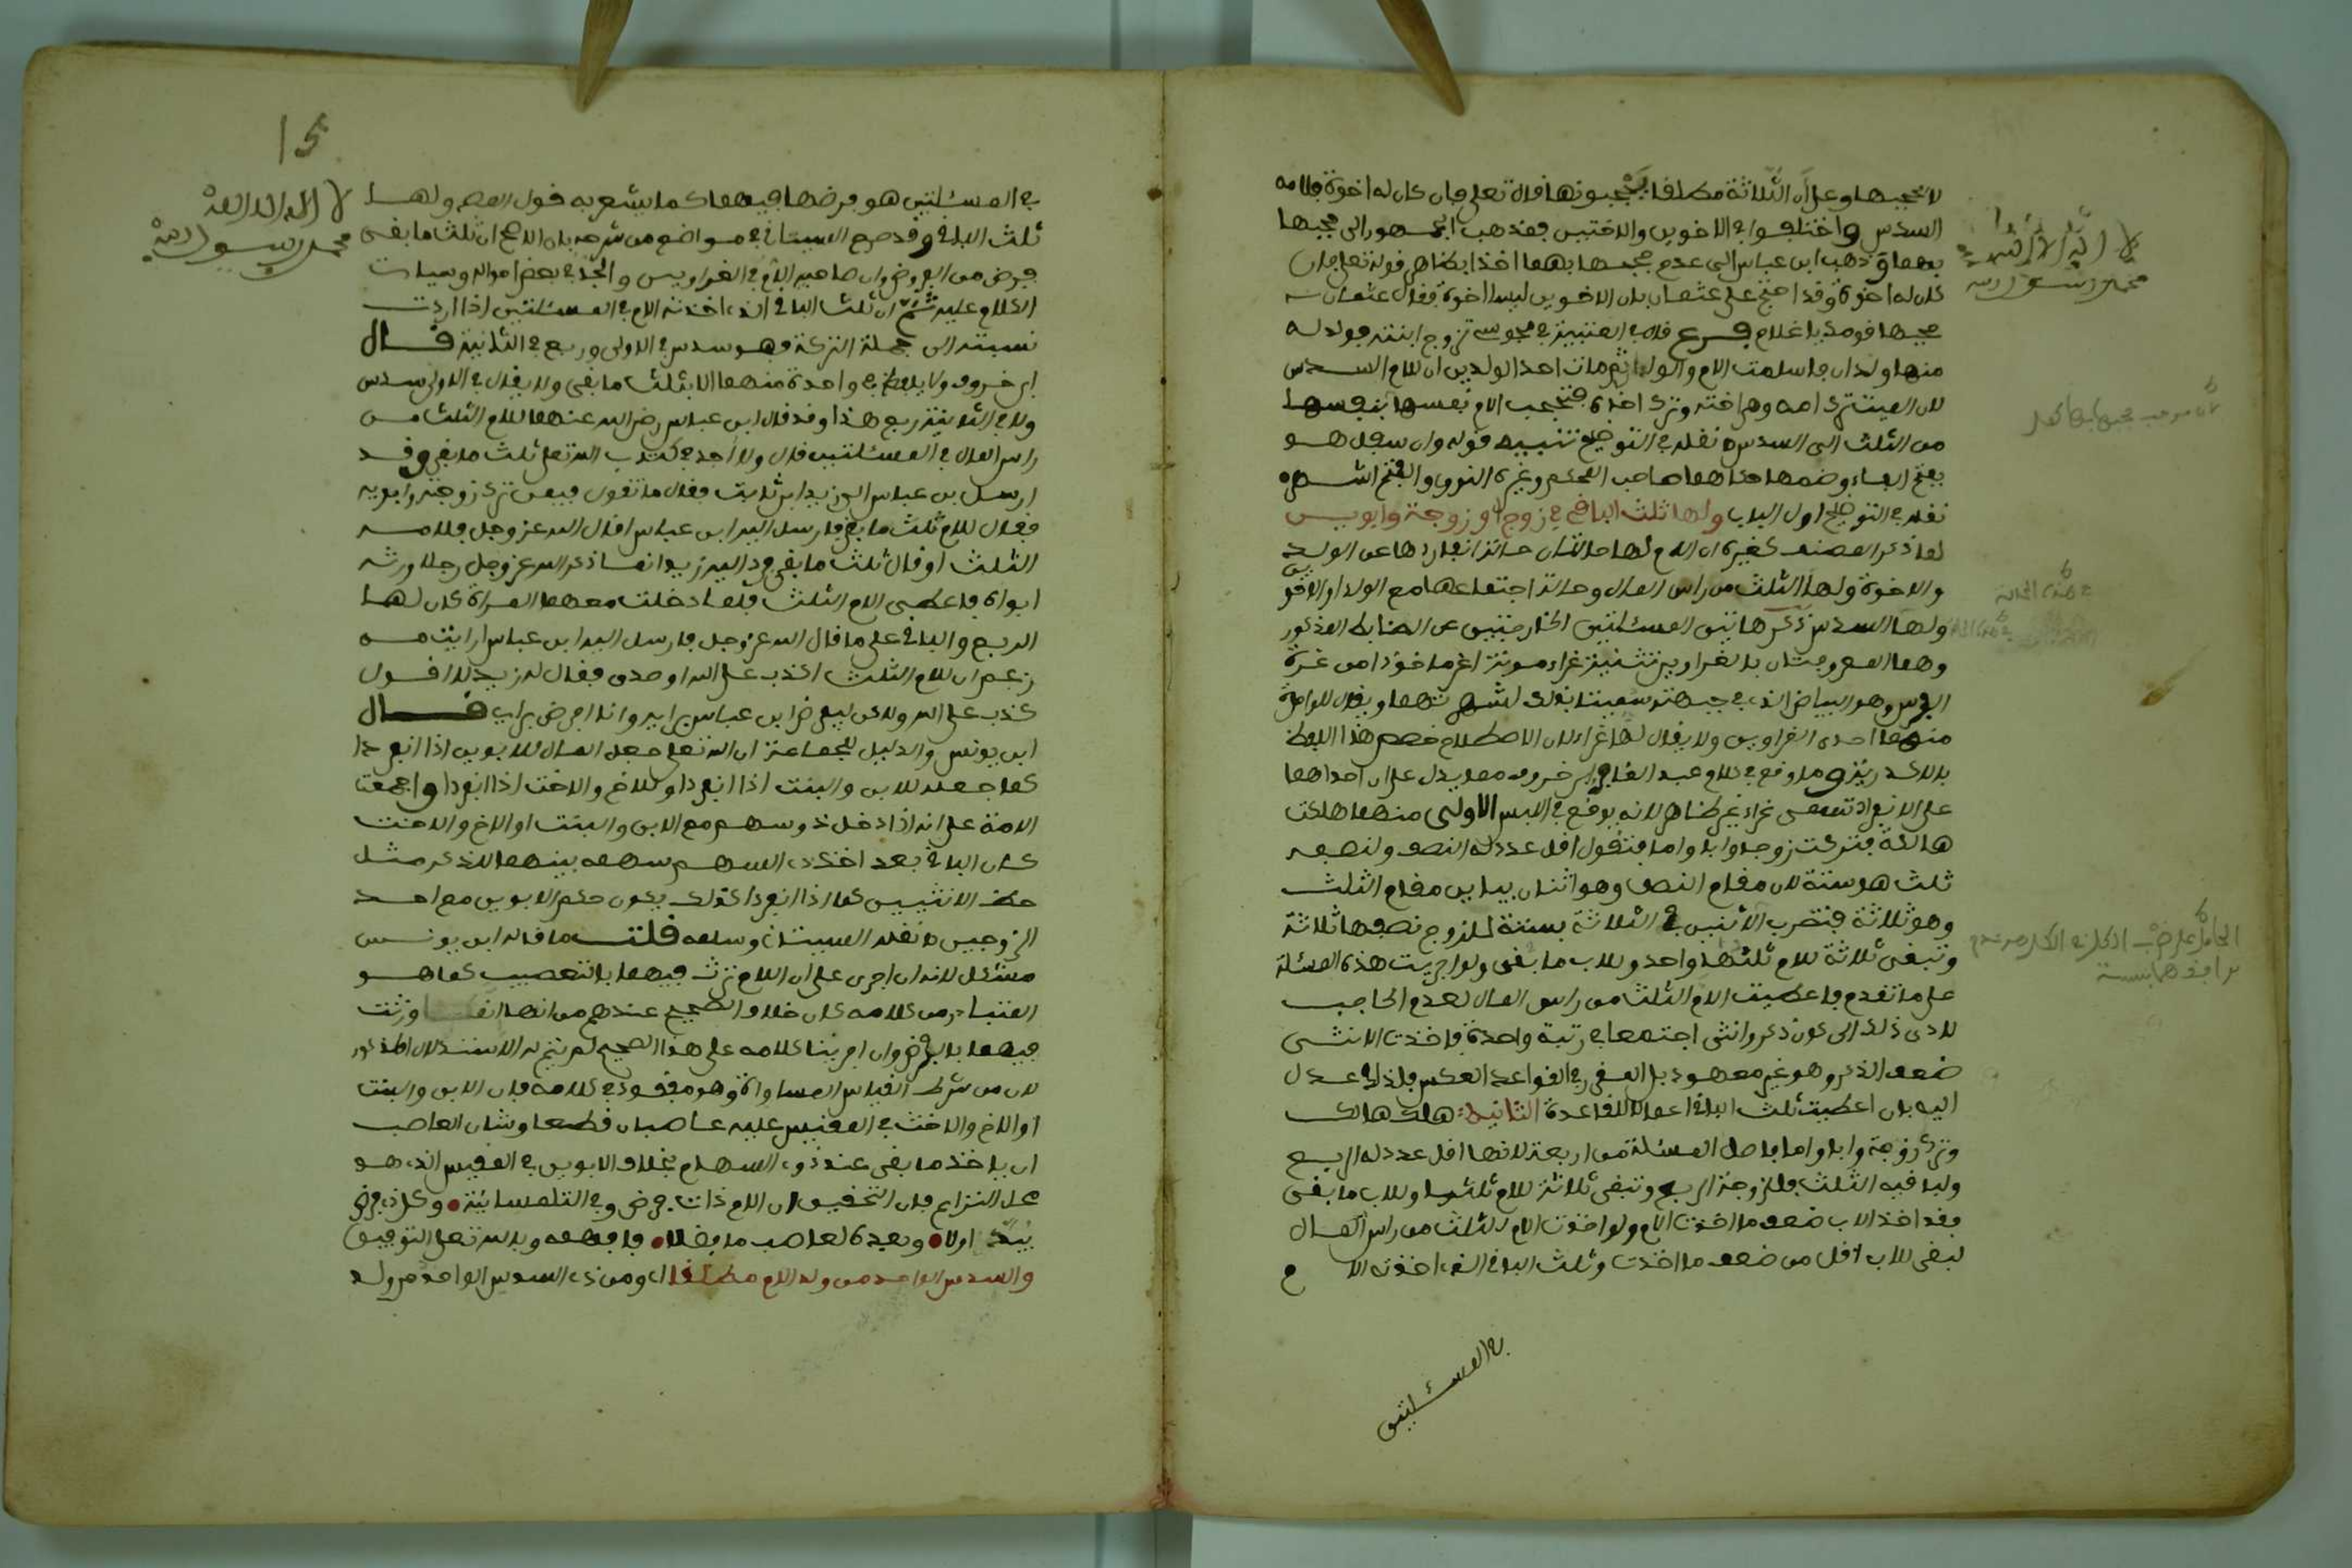 لا تحجبها وعلى أن الثلاثة مطلقا يحجبونها قال تعلى فإن كان له اخوة فلامه
السدس واختلفوا في الاخوين والاختين فمذهب الجمهور الى حجبها
بهما وذهب ابن عباس الى عدم حجبها بهما اخذا بظاهر قوله تعلى فإن
كان له اخوة وقد احتج على عثمان بان الاخوين ليسا اخوة فقال عثمان
حجبها قومك يا غلام فرع قال في العتبية في مجوسي تزوج ابنته فولد له
منها ولدان فاسلمت الام والولدان ثم مات احد الولدين ان للام السدس
لان الميت ترك امه وهي اخته وترك اخاه فتحجب الام نفسها بنفسها
من الثلث الى السدس نقله في التوضيح تنبيه قوله وان سفل هو
بفتح الفاء وضمها حكاهما صاحب المحكم وغيره النووي والفتح اشهر
نقله في التوضيح اول الباب ولها ثلث الباقي في زوج او زوجة وابوين
لما ذكر المصنف كغيره ان الام لها حالتان حالة انفرادها عن الولد
والاخوة ولها الثلث من راس المال وحالة اجتماعها مع الولد او الاخوين
ولها السدس ذكر هاتين المسئلتين الخارجتين عن الضابط المذكور
وهما المعروفتان بالغراوين تثنية غراء مونث اغر ماخوذا من غرة
الفرس وهو البياض الذي في جبهته سميتا بذلك لشهرتهما ويقال للواحدة
منهما احدى الغراوين ولا يقال لها غراء لان الاصطلاح خصص هذا اللفظ
بالاكدرية وما وقع في كلام عبد الغافر ابن خروف مما يدل على ان احداهما
على الانفراد تسمى غراء غير ظاهر لانه يوقع في اللبس الاولى منهما هلكت
هالكة فتركت زوجا وابا واما فنقول اقل عدد له النصف ولنصفه
ثلث هو ستة لان مقام النصف وهو اثنان يباين مقام الثلث
وهو ثلاثة فتضرب الاثنين في الثلاثة بستة للزوج نصفها ثلاثة
وتبقى ثلاثة للام ثلثها واحد وللاب ما بقى ولو اجريت هذه المسئلة
على ما تقدم فاعطيت الام الثلث من راس المال لعدم الحاجب
لادى ذلك الى كون ذكر وانثى اجتمعا في رتبة واحدة فاخذت الانثى
ضعف الذكر وهو غير معهود بل المقرر في القواعد العكس فلذلك عدل
اليه بان اعطيت ثلث الباقي اعمالا للقاعدة الثانية هلك هالك
وترك زوجة وابا واما فاصل المسئلة من اربعة لانها اقل عدد له الربع
ولباقيه الثلث فللزوجة الربع وتبقى ثلاثة للام ثلثها وللاب ما بقى
فقد اخذ الاب ضعف ما اخذت الام ولو اخذت الام الثلث من راس المال
لبقى للاب اقل من ضعف ما اخذت وثلث الباقي الذي اخذته الام
في المسئلتين
لا اله الا الله
محمد رسول الله
15
لا اله الا الله
محمد رسول الله
في المسئلتين هو فرضها فيهما كما يشعر به قول المص ولها
ثلث الباقي وقد صرح السبتاني في مواضع من شرحه بان الاصح ان ثلث ما بقى
فرض من الفروض وان صاحبه الام في الغراوين والجد في بعض احواله وسيات
الكلام عليه ثم ان ثلث الباقي الذي اخذته الام في المسئلتين اذا اردت
نسبته الى جملة التركة فهو سدس في الاولى وربع في الثانية قال
ابن خروف ولا يلفظ في واحدة منهما الا بثلث ما بقى ولا يقال في الاولى سدس
ولا في الثانية ربع هذا وقد قال ابن عباس رضي الله عنهما للام الثلث من
راس المال في المسئلتين قال ولا اجد في كتاب الله تعلى ثلث ما بقى وقد
ارسل ابن عباس الى زيد ابن ثابت فقال ما تقول فيمن ترك زوجته وابويه
فقال للام ثلث ما بقى فارسل اليه ابن عباس اقال الله عز وجل فلامه
الثلث او قال ثلث ما بقى فرد اليه زيد انما ذكر الله عز وجل رجلا ورثه
ابواه فاعطى الام الثلث فلما دخلت معهما المراة كان لها
الربع والباقي على ما قال الله عز وجل فارسل اليه ابن عباس ارايت من
زعم ان للام الثلث اكذب على الله او صدق فقال له زيد لا اقول
كذب على الله ولكن ليفرض ابن عباس برايه وانا افرض برايي قال
ابن يونس والدليل للجماعة ان الله تعلى جعل المال للابوين اذا انفردا
كما جعله للابن والبنت اذا انفردا وللاخ والاخت اذا انفردا واجمعت
الامة على انه اذا دخل ذو سهم مع الابن والبنت او الاخ والاخت
كان الباقي بعد اخذ ذي السهم سهمه بينهما للذكر مثل
حظ الانثيين كما اذا انفردا فكذلك يكون حكم الابوين مع احد
الزوجين نقله السبتاني وسلمه قلت ما قاله ابن يونس
مشكل لانه ان اجرى على ان الام ترث فيهما بالتعصيب كما هو
المتبادر من كلامه كان خلاف الصحيح عندهم من انها انما ورثت
فيهما بالفرض وان اجرينا كلامه على هذا الصحيح لم يتم له الاستدلال المذكور
لان من شرط القياس المساواة وهو مفقود في كلامه فإن الابن والبنت
او الاخ والاخت في المقيس عليه عاصبان قطعا وشان العاصب
ان ياخذ ما بقى عند ذوي السهام بخلاف الابوين في المقيس الذي هو
محل النزاع فإن التحقيق ان الام ذات فرض وفي التلمسانية وكل ذي فرض
يبدا اولا وبعده لعاصب ما يفضلا فافهمه وبالله تعلى التوفيق
والسدس للواحد من ولد الام مطلقا اى ومن ذوي السدس الواحد من ولد